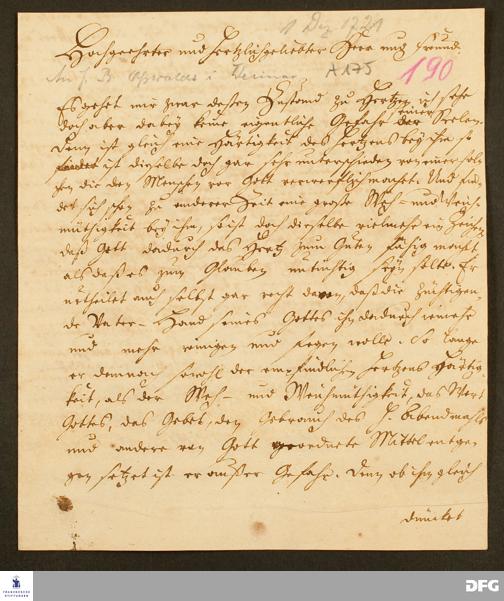 1 Dez 1721
Hochgeehrter und hertzlichgeliebter Herr und Freund.
An J. B. in Weimar
A175
190
Es gehet mir zwar dessen Zustand zu Hertzen, ich sehe
doch aber dabey keine eigentliche Gefahr seiner Seelen.
Denn ist gleich eine Härtigkeit des Hertzens bey ihm so
ist dieselbe doch gar sehr unterschieden von einer sol-
chen die den Menschen vor Gott verwerflich machet. Und fin-
det sich schon zu anderer Zeit eine große Weh- und Weich-
müthigkeit bey ihm, so ist doch dieselbe vielmehr ein Zeichen
daß Gott dadurch das Hertz zum Guten fähig machet,
als daß es zum Glauben untüchtig seyn solte. Er
urtheilet auch selbst gar recht davon, daß die züchtigen-
de Vater-Hand seines Gottes ihn dadurch immer
und mehr reinigen und fegen wolle. So lange
er demnach sowohl der empfindlichen Hertzens Härtig-
keit, als der Weh- und Weichmüthigkeit, das Wort
Gottes, das Gebet, den Gebrauch des H. Abendmahls
und andere von Gott geordnete Mittel entge-
gen setzet ist er außer Gefahr. Denn ob ihn gleich
düncket
FRANCKESCHE
STIFTUNGEN
DFG